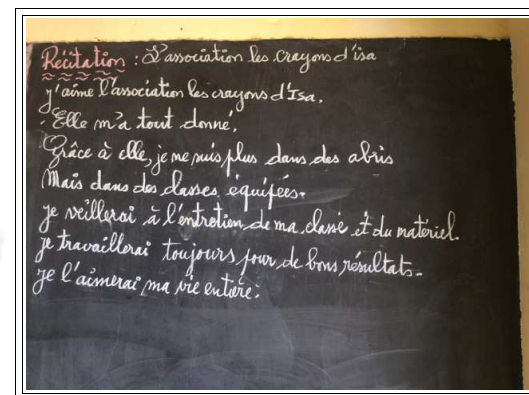 Récitation : L'association les crayons d'isa
j'aime l'association les crayons d'Isa.
Elle m'a tout donné.
Grâce à elle, je ne suis plus dans des abris
Mais dans des classes équipées.
je veillerai à l'entretien de ma classe et du matériel.
je travaillerai toujours pour de bons résultats.
je l'aimerai ma vie entière.